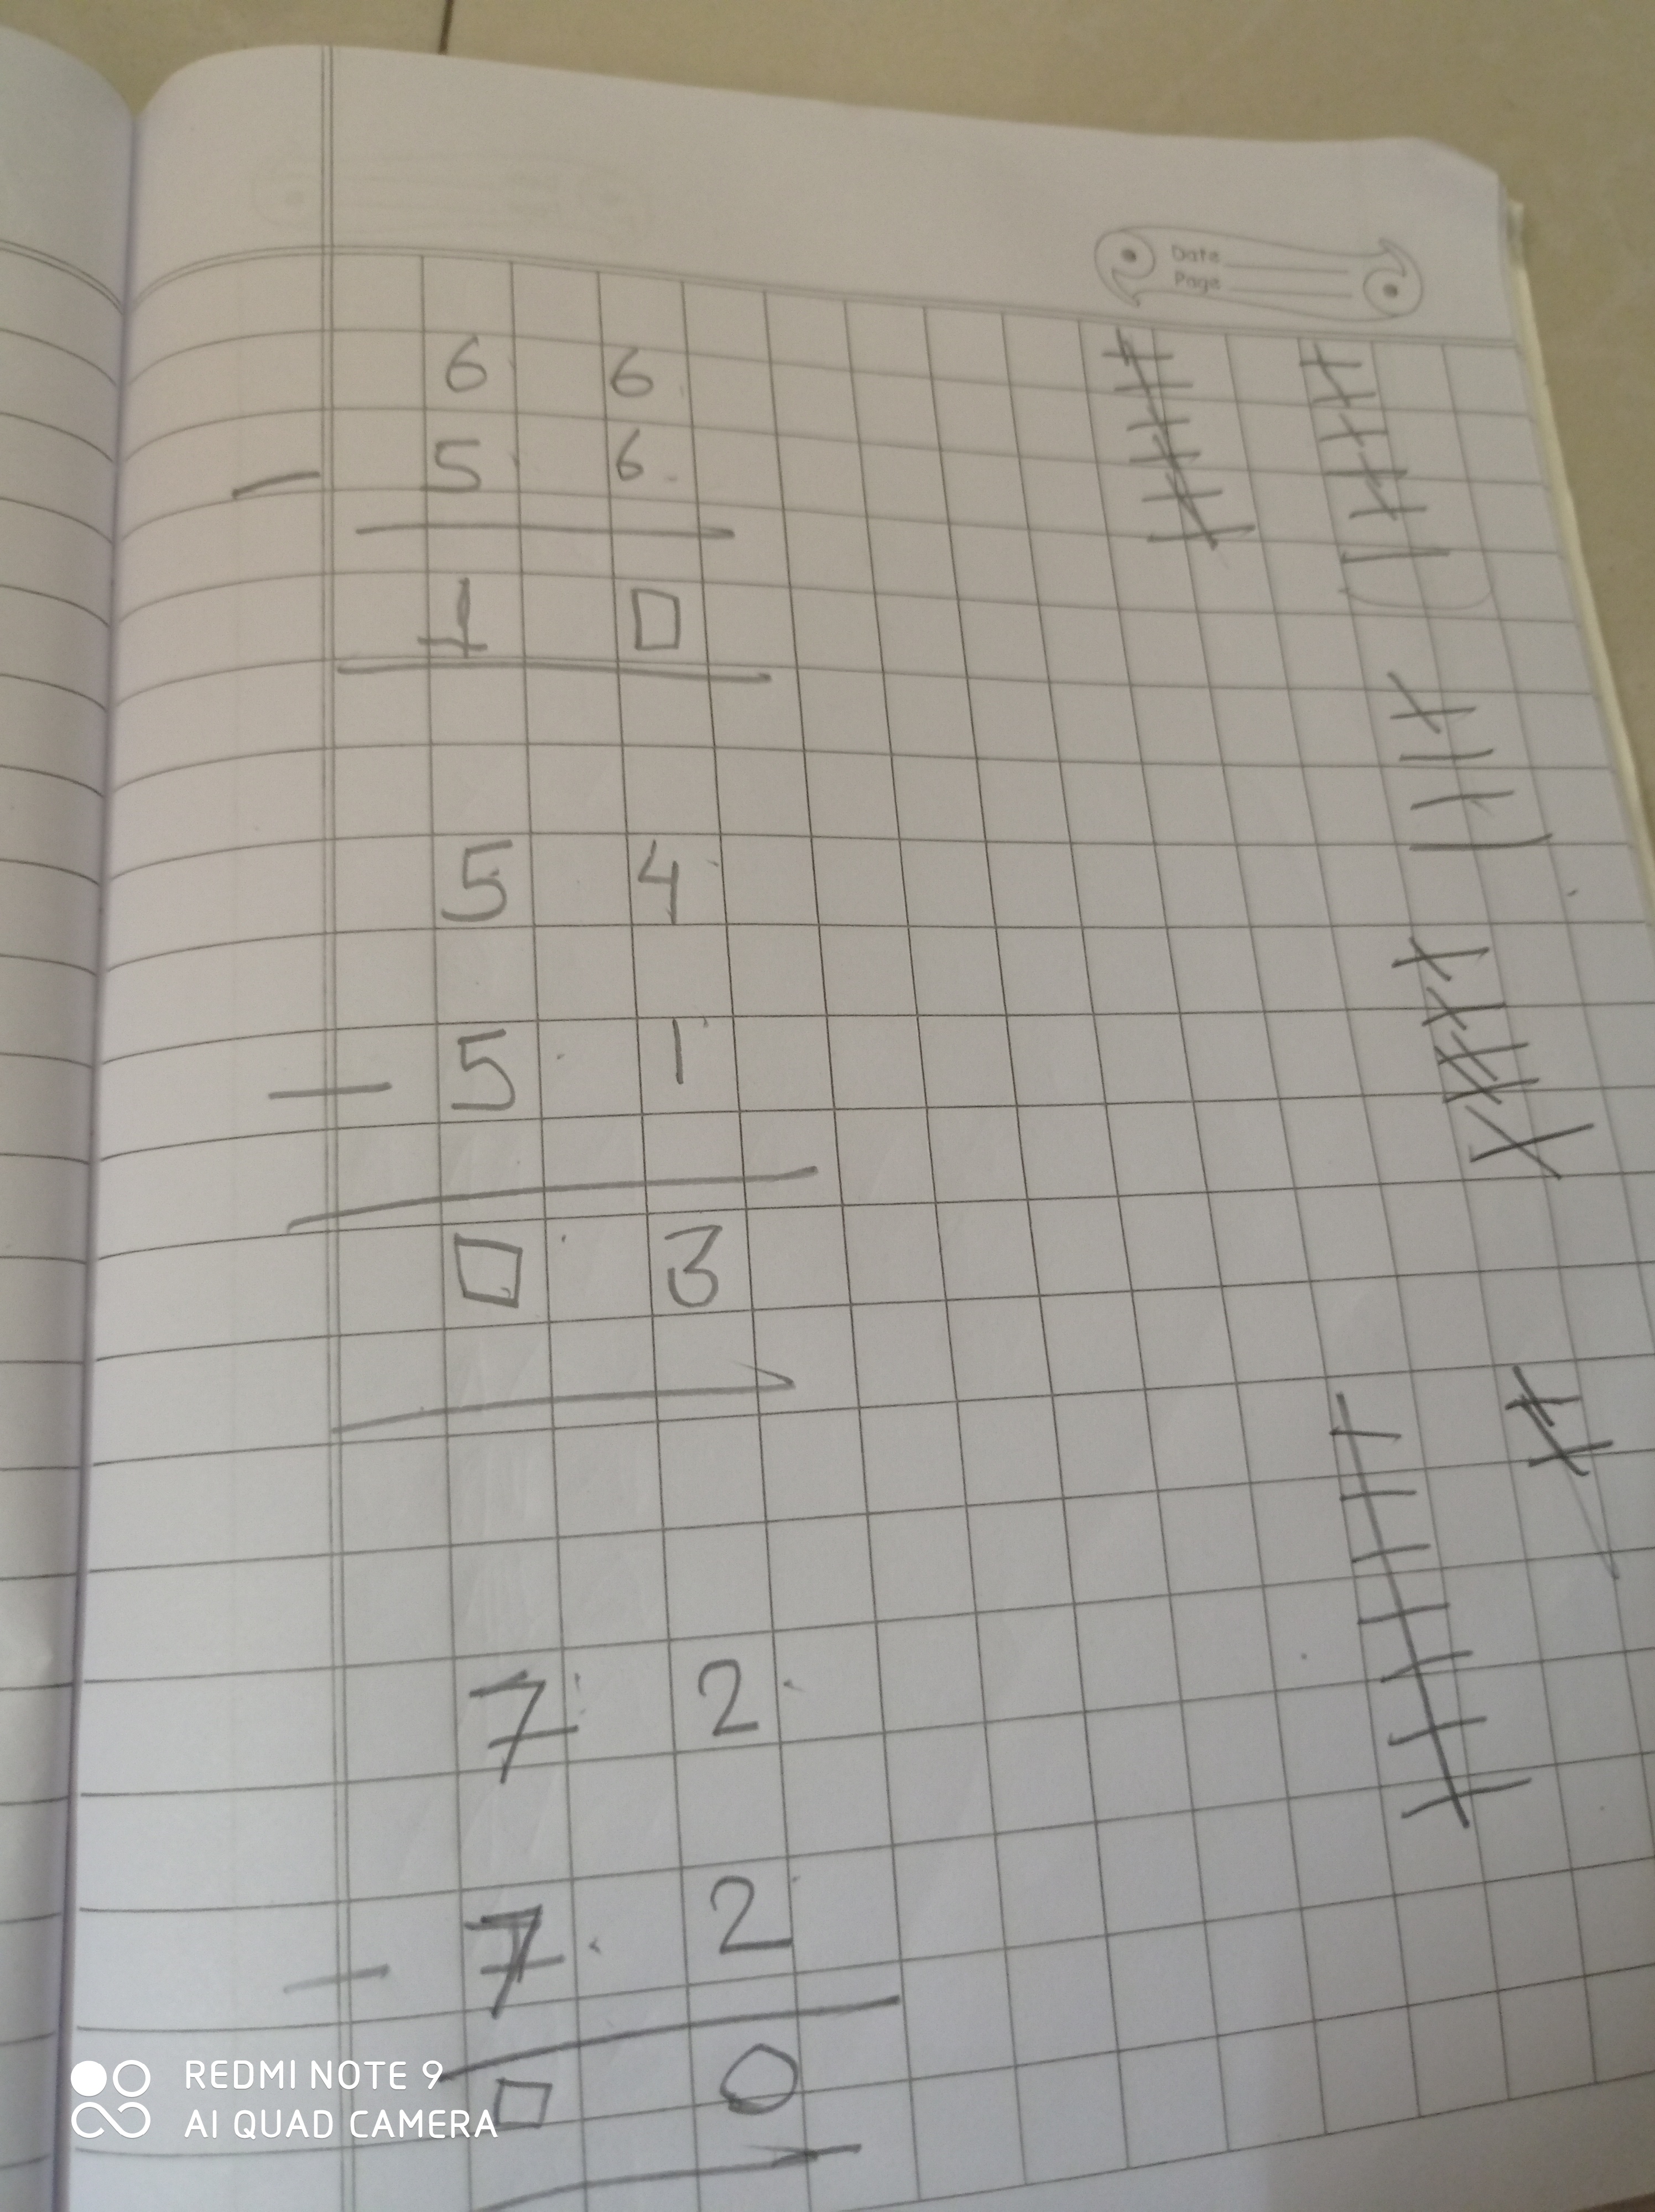 Date
Page
6 6
- 5 6
1 0
5 4
- 5 1
0 3
7 2
- 7 2
0 0
REDMI NOTE 9
AI QUAD CAMERA